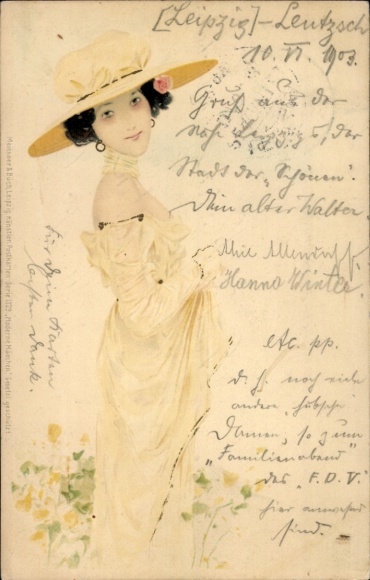 [Leipzig]-Leutzsch
10. VI. 1903.
Gruß aus der
Leipzig, der
Stadt der „Schönen".
Dein alter Walter.
Hanna
etc. pp.
d. h. noch viele
andere „hübsche"
Damen, so zum
„Familienabend"
des „F.D.V."
hier anwesend
sind.
Für Deine Karten
besten Dank.
Meissner & Buch, Leipzig Künstler-Postkarten Serie 1225 „Moderne Mädchen" Gesetzl. geschützt